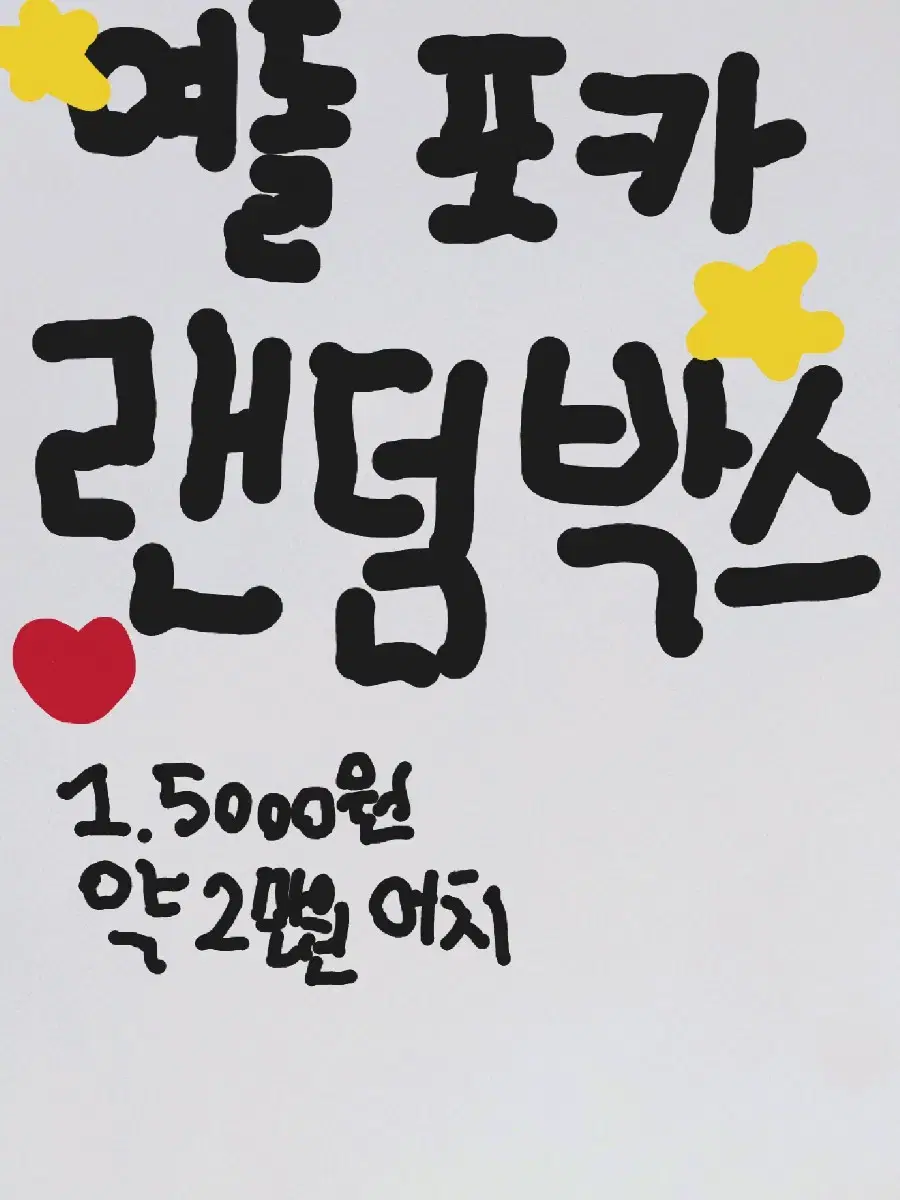 여돌 포카
랜덤박스
1.5000원
약 2만원 어치